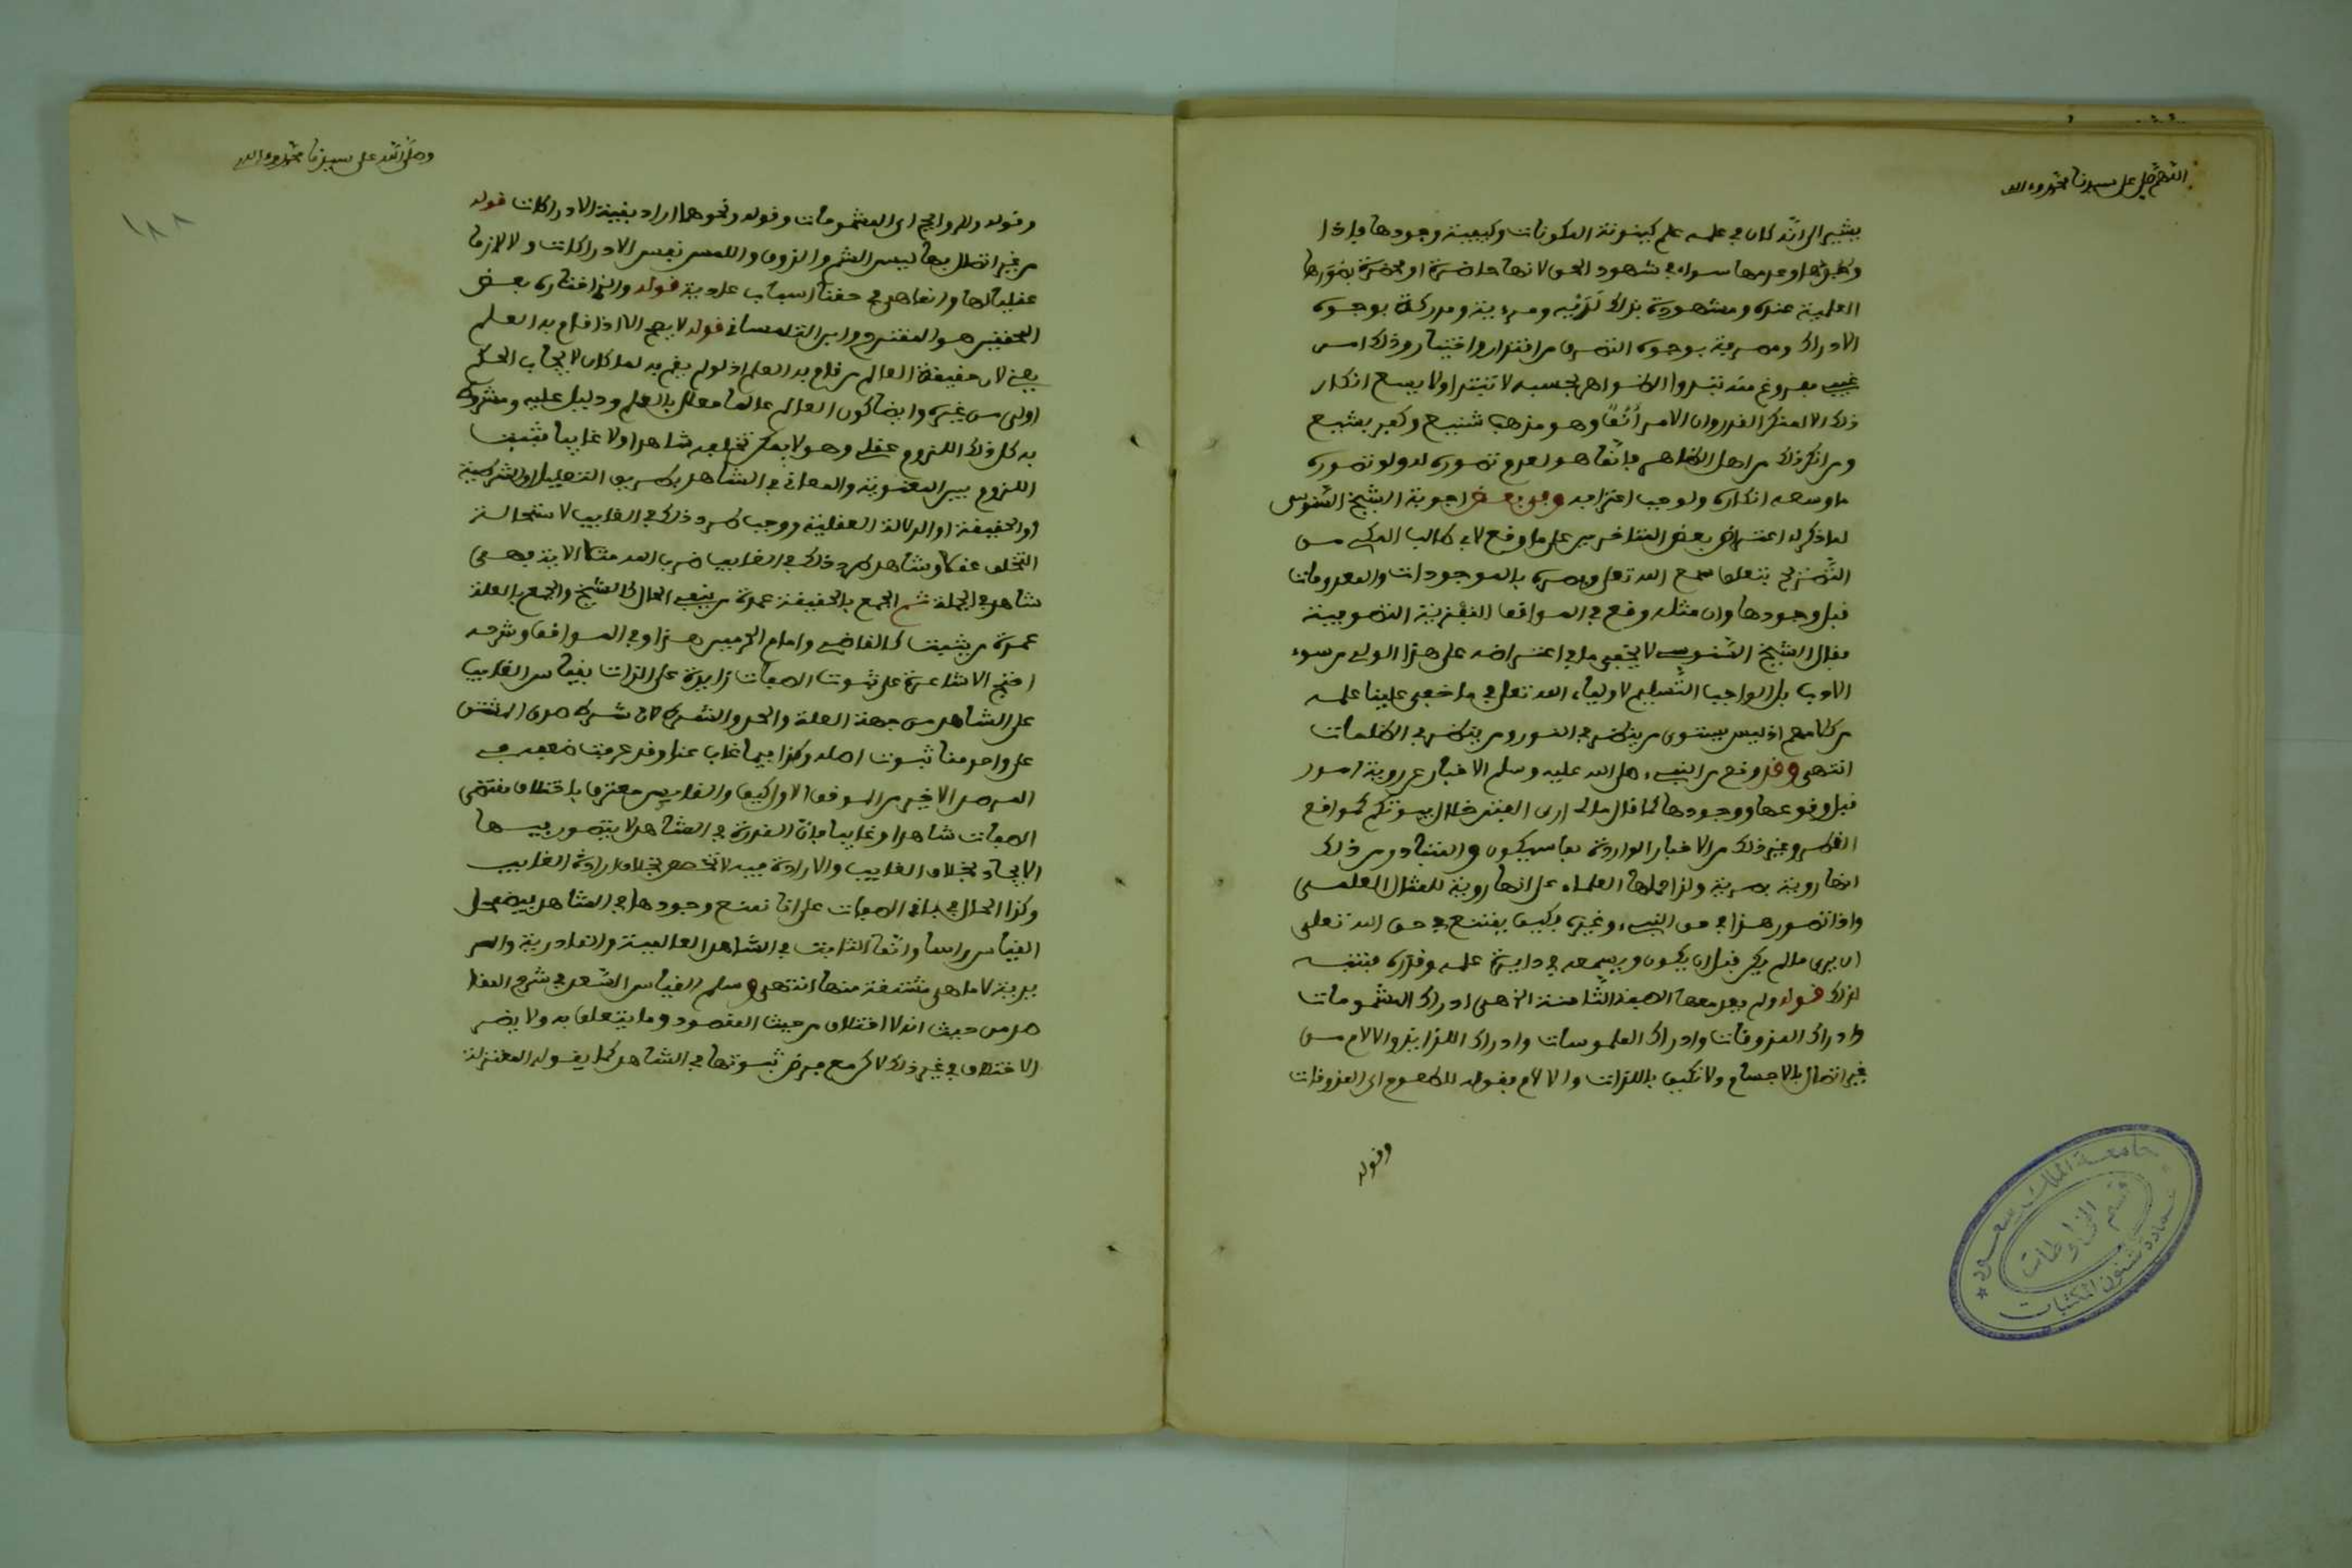 اللهم صل على سيدنا محمد وءاله
يشير الى انه كان في علمه علم كينونة المكونات وكيفية وجودها فاذا
وجودها وعدمها سواء في شهود الحق لانها حاضرة او محضرة بصورها
العلمية عنده ومشهودة بذلك لديه ومرءية ومدركة بوجوه
الادراك ومصرفة بوجوه التصرف من اقتدار واختيار وذلك امر
غيبي مفروغ منه تبدوا الظواهر بحسبه لا تبتدا ولا يسع انكار
ذلك الا لمنكر القدر وان الامر أنف وهو مذهب شنيع وكفر بشيع
ومن انكر ذلك من اهل الظاهر فانما هو لعدم تصوره له ولو تصوره
ما وسعه انكاره ولوجب اعترافه وفي بعض اجوبة الشيخ السنوسي
لما ذكر له اعتراض بعض المتاخرين على ما وقع لابي طالب المكي من
التصريح بتعلق سمع الله تعلى وبصره بالموجودات والمعدومات
قبل وجودها وان مثله وقع في المواقف النفزية التصوفية
فقال الشيخ السنوسي لا يخفى ما في اعتراضه على هذا الولي من سوء
الادب بل الواجب التسليم لاولياء الله تعلى في ما خفي علينا علمه
من كلامهم اذ ليس يستوي من ينظر في النور ومن ينظر في الظلمات
انتهى وقد وقع من النبيء صلى الله عليه وسلم الاخبار عن روية امور
قبل وقوعها ووجودها كما قال مالي ارى الفتن خلال بيوتكم كمواقع
القطر وغير ذلك من الاخبار الواردة بما سيكون والمتبادر من ذلك
انها روية بصرية ولذا حملها العلماء على انها روية للمثال العلمي
واذا تصور هذا في حق النبيء وغيره فكيف يمتنع في حق الله تعلى
ان يرى ما لم يكن قبل ان يكون ويسمعه في دايرة علمه وقدره فتنبه
لذلك قوله ولم يعد معها الصفة الثامنة التي هي ادراك المشمومات
وادراك المذوقات وادراك الملموسات وادراك اللذايذ والالام من
غير اتصال بالاجسام ولا تكيف باللذات والالام فقوله للطعوم اي المذوقات
وقوله
جامعة الملك سعود
عمادة شئون المكتبات
قسم المخطوطات
وصلى الله على سيدنا محمد وءاله
١٨٨
وقوله وللروايح اي المشمومات وقوله ونحوهما اراد بقية الادراكات قوله
من غير اتصال بها ليس الشم والذوق واللمس نفس الادراكات ولا لازما
عقليا لها وانما هي في حقنا اسباب عادية قوله والذي اختاره بعض
المحققين هو المقترح وابن التلمساني قوله لا يصح الا اذا قام به العلم
يعني لان حقيقة العالم من قام به العلم اذ لو لم يقم به لما كان لايجاب الحكم
اولى من غيره وايضا كون العالم عالما معلل بالعلم ودليل عليه ومشروط
به كل ذلك اللزوم عقلي وهو لا يمكن تخلفه شاهدا ولا غايبا فثبت
اللزوم بين المعنوية والمعاني في الشاهد بطريق التعليل او الشرطية
او الحقيقة او الدلالة العقلية ووجب طرد ذلك في الغايب لاستحالة
التخلف عقلا وشاهد طرد ذلك في الغايب ضرب الله مثلا الاية فهي
شاهد في الجملة ثم الجمع بالحقيقة عمدة من ينفي الحال كالشيخ والجمع بالعلة
عمدة من يثبت كالقاضي وامام الحرمين هذا وفي المواقف وشرحه
احتج الاشاعرة على ثبوت الصفات زايدة على الذات بقياس الغايب
على الشاهد من جهة العلة والحد والشرط فان شرط صدق المشتق
على واحد منا ثبوت اصله وكذا فيما غاب عنا وقد عرفت ضعفه في
المرصد الاخير من الموقف الاول كيف والقايس معترف باختلاف مقتضى
الصفات شاهدا وغايبا فان القدرة في الشاهد لا يتصور فيها
الايجاد بخلاف الغايب والارادة فيه لا تخصص بخلاف ارادة الغايب
وكذا الحال في باقي الصفات على انا نمنع وجودها في الشاهد فيضمحل
القياس راسا وانما الثابت في الشاهد العالمية والقادرية والمر
يدية لا ما هي مشتقة منها انتهى وسلم القياس السعد في شرح المقا
صد من حيث انه لا اختلاف من حيث المقصود وما يتعلق به ولا يضر
الاختلاف في غير ذلك لاكن مع فرض ثبوتها في الشاهد كما يقوله المعتزلة